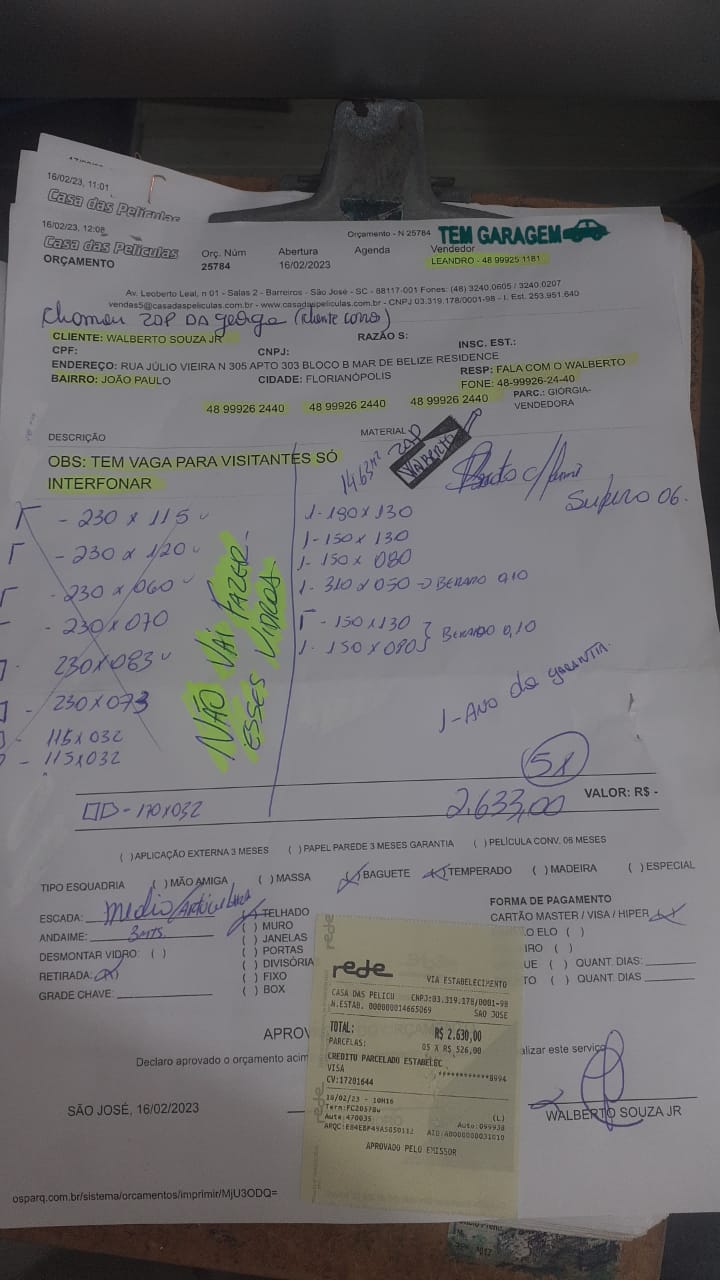 16/02/23, 11:01
Casa das Películas
16/02/23, 12:08
Casa das Películas
ORÇAMENTO
Orçamento - N 25784
TEM GARAGEM
Orç. Núm Abertura Agenda Vendedor
25784 16/02/2023 LEANDRO - 48 99925 1181
Av. Leoberto Leal, n 01 - Salas 2 - Barreiros - São José - SC - 88117-001 Fones: (48) 3240.0605 / 3240.0207
vendas5@casadaspeliculas.com.br - www.casadaspeliculas.com.br - CNPJ 03.319.178/0001-98 - I. Est. 253.951.640
ZAP DA
CLIENTE: WALBERTO SOUZA JR RAZÃO S:
CPF: CNPJ: INSC. EST.:
ENDEREÇO: RUA JÚLIO VIEIRA N 305 APTO 303 BLOCO B MAR DE BELIZE RESIDENCE
BAIRRO: JOÃO PAULO CIDADE: FLORIANÓPOLIS
RESP: FALA COM O WALBERTO
FONE: 48-99926-24-40
PARC.: GIÓRGIA-
VENDEDORA
48 99926 2440 48 99926 2440 48 99926 2440
DESCRIÇÃO MATERIAL
OBS: TEM VAGA PARA VISITANTES SÓ
INTERFONAR
ZAP
WALBERTO
- 230 x 115
- 230 x 120
- 230 x 060
- 230 x 070
230 x 083
- 230 x 073
- 115 x 032
- 115 x 032
NÃO VAI FAZER
ESSES VIDROS
1- 190 x 130
1- 150 x 130
1- 150 x 080
1- 310 x 050
- 150 x 130
1- 150 x 080
1-ANO de GARANTIA
5x
- 170 x 032
2.633,00 VALOR: R$ -
( ) APLICAÇÃO EXTERNA 3 MESES ( ) PAPEL PAREDE 3 MESES GARANTIA ( ) PELÍCULA CONV. 06 MESES
TIPO ESQUADRIA ( ) MÃO AMIGA ( ) MASSA (x) BAGUETE (x) TEMPERADO ( ) MADEIRA ( ) ESPECIAL
ESCADA: medio
ANDAIME: 3mts.
DESMONTAR VIDRO: ( )
RETIRADA: (x)
GRADE CHAVE:
(x) TELHADO
( ) MURO
( ) JANELAS
( ) PORTAS
( ) DIVISÓRIA
( ) FIXO
( ) BOX
FORMA DE PAGAMENTO
CARTÃO MASTER / VISA / HIPER (x)
O ELO ( )
IRO ( )
UE ( ) QUANT. DIAS:
TO ( ) QUANT. DIAS
APROV
Declaro aprovado o orçamento acim
alizar este serviço
SÃO JOSÉ, 16/02/2023
WALBERTO SOUZA JR
rede
VIA ESTABELECIMENTO
CASA DAS PELICU CNPJ:03.319.178/0001-98
N.ESTAB. 000000014665069 SAO JOSE
TOTAL: R$ 2.630,00
PARCELAS: 05 X R$ 526,00
CREDITO PARCELADO ESTABELEC
VISA ************8994
CV:17201644
- 10H16 (L)
Auto:470035 Auto:099938
APROVADO PELO EMISSOR
osparq.com.br/sistema/orcamentos/imprimir/MjU3ODQ=